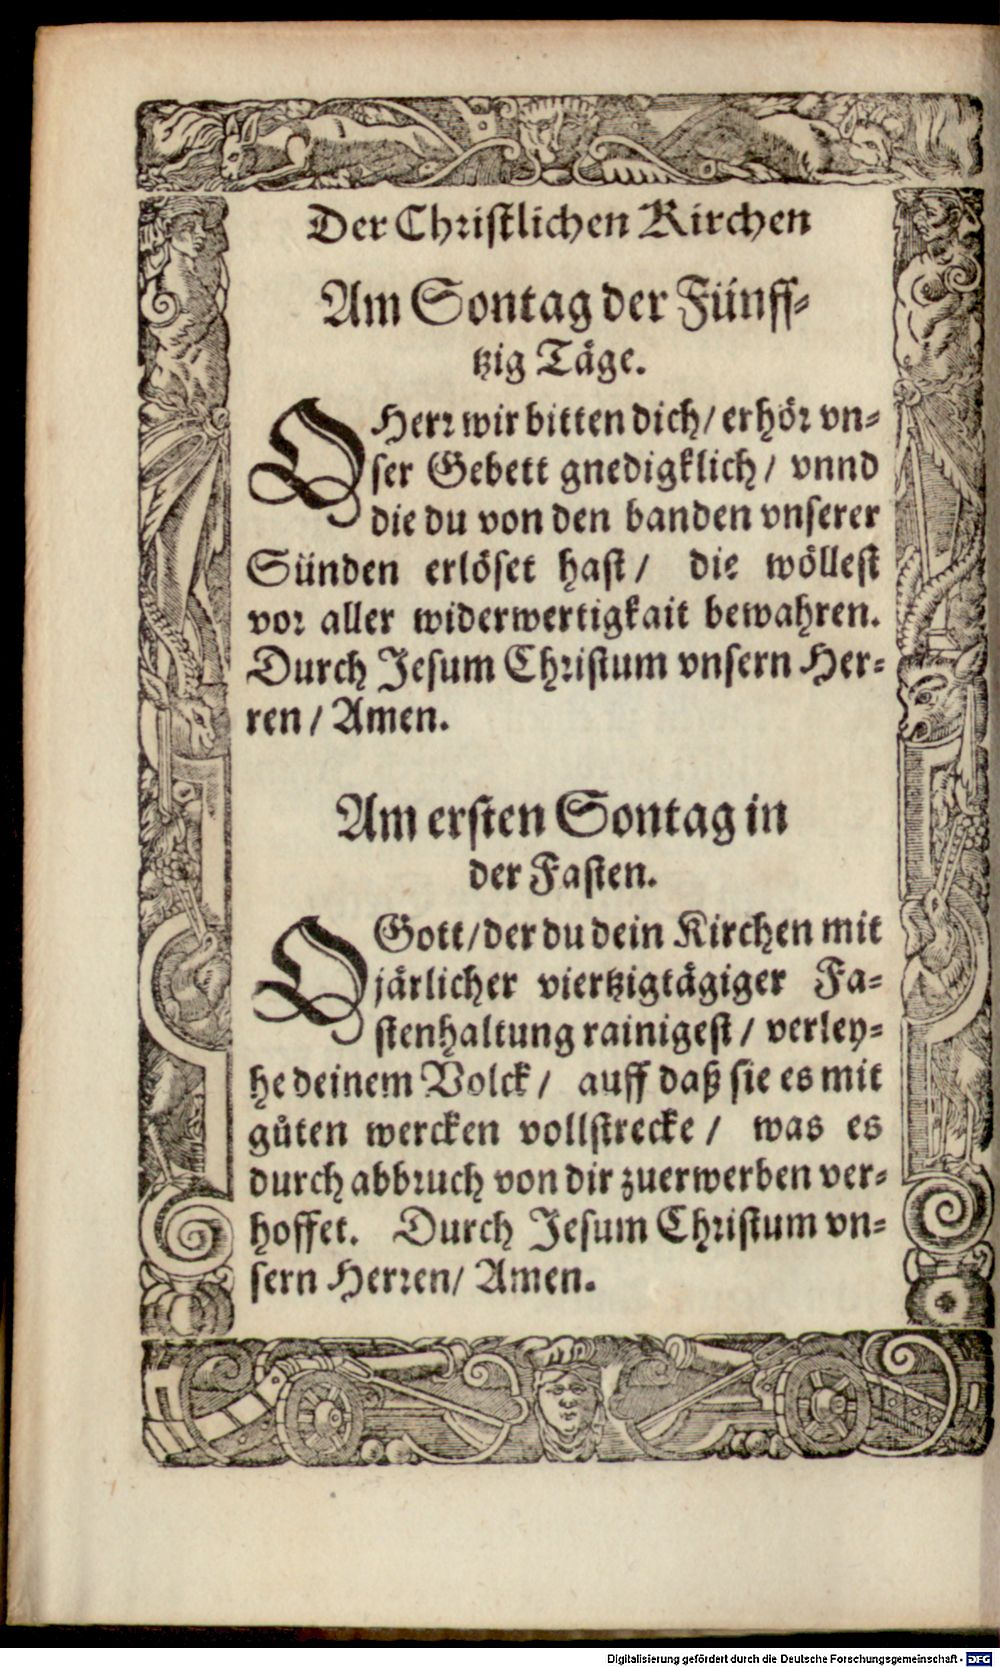 Der Christlichen Kirchen
Am Sontag der Fünff-
tzig Täge.
O Herr wir bitten dich/ erhör vn-
ser Gebett gnedigklich/ vnnd
die du von den banden vnserer
Sünden erlöset hast/ die wöllest
vor aller widerwertigkait bewahren.
Durch Jesum Christum vnsern Her-
ren/ Amen.
Am ersten Sontag in
der Fasten.
O Gott/ der du dein Kirchen mit
järlicher viertzigtägiger Fa-
stenhaltung rainigest/ verley-
he deinem Volck/ auff daß sie es mit
gůten wercken vollstrecke/ was es
durch abbruch von dir zuerwerben ver-
hoffet. Durch Jesum Christum vn-
sern Herren/ Amen.
Digitalisierung gefördert durch die Deutsche Forschungsgemeinschaft - DFG